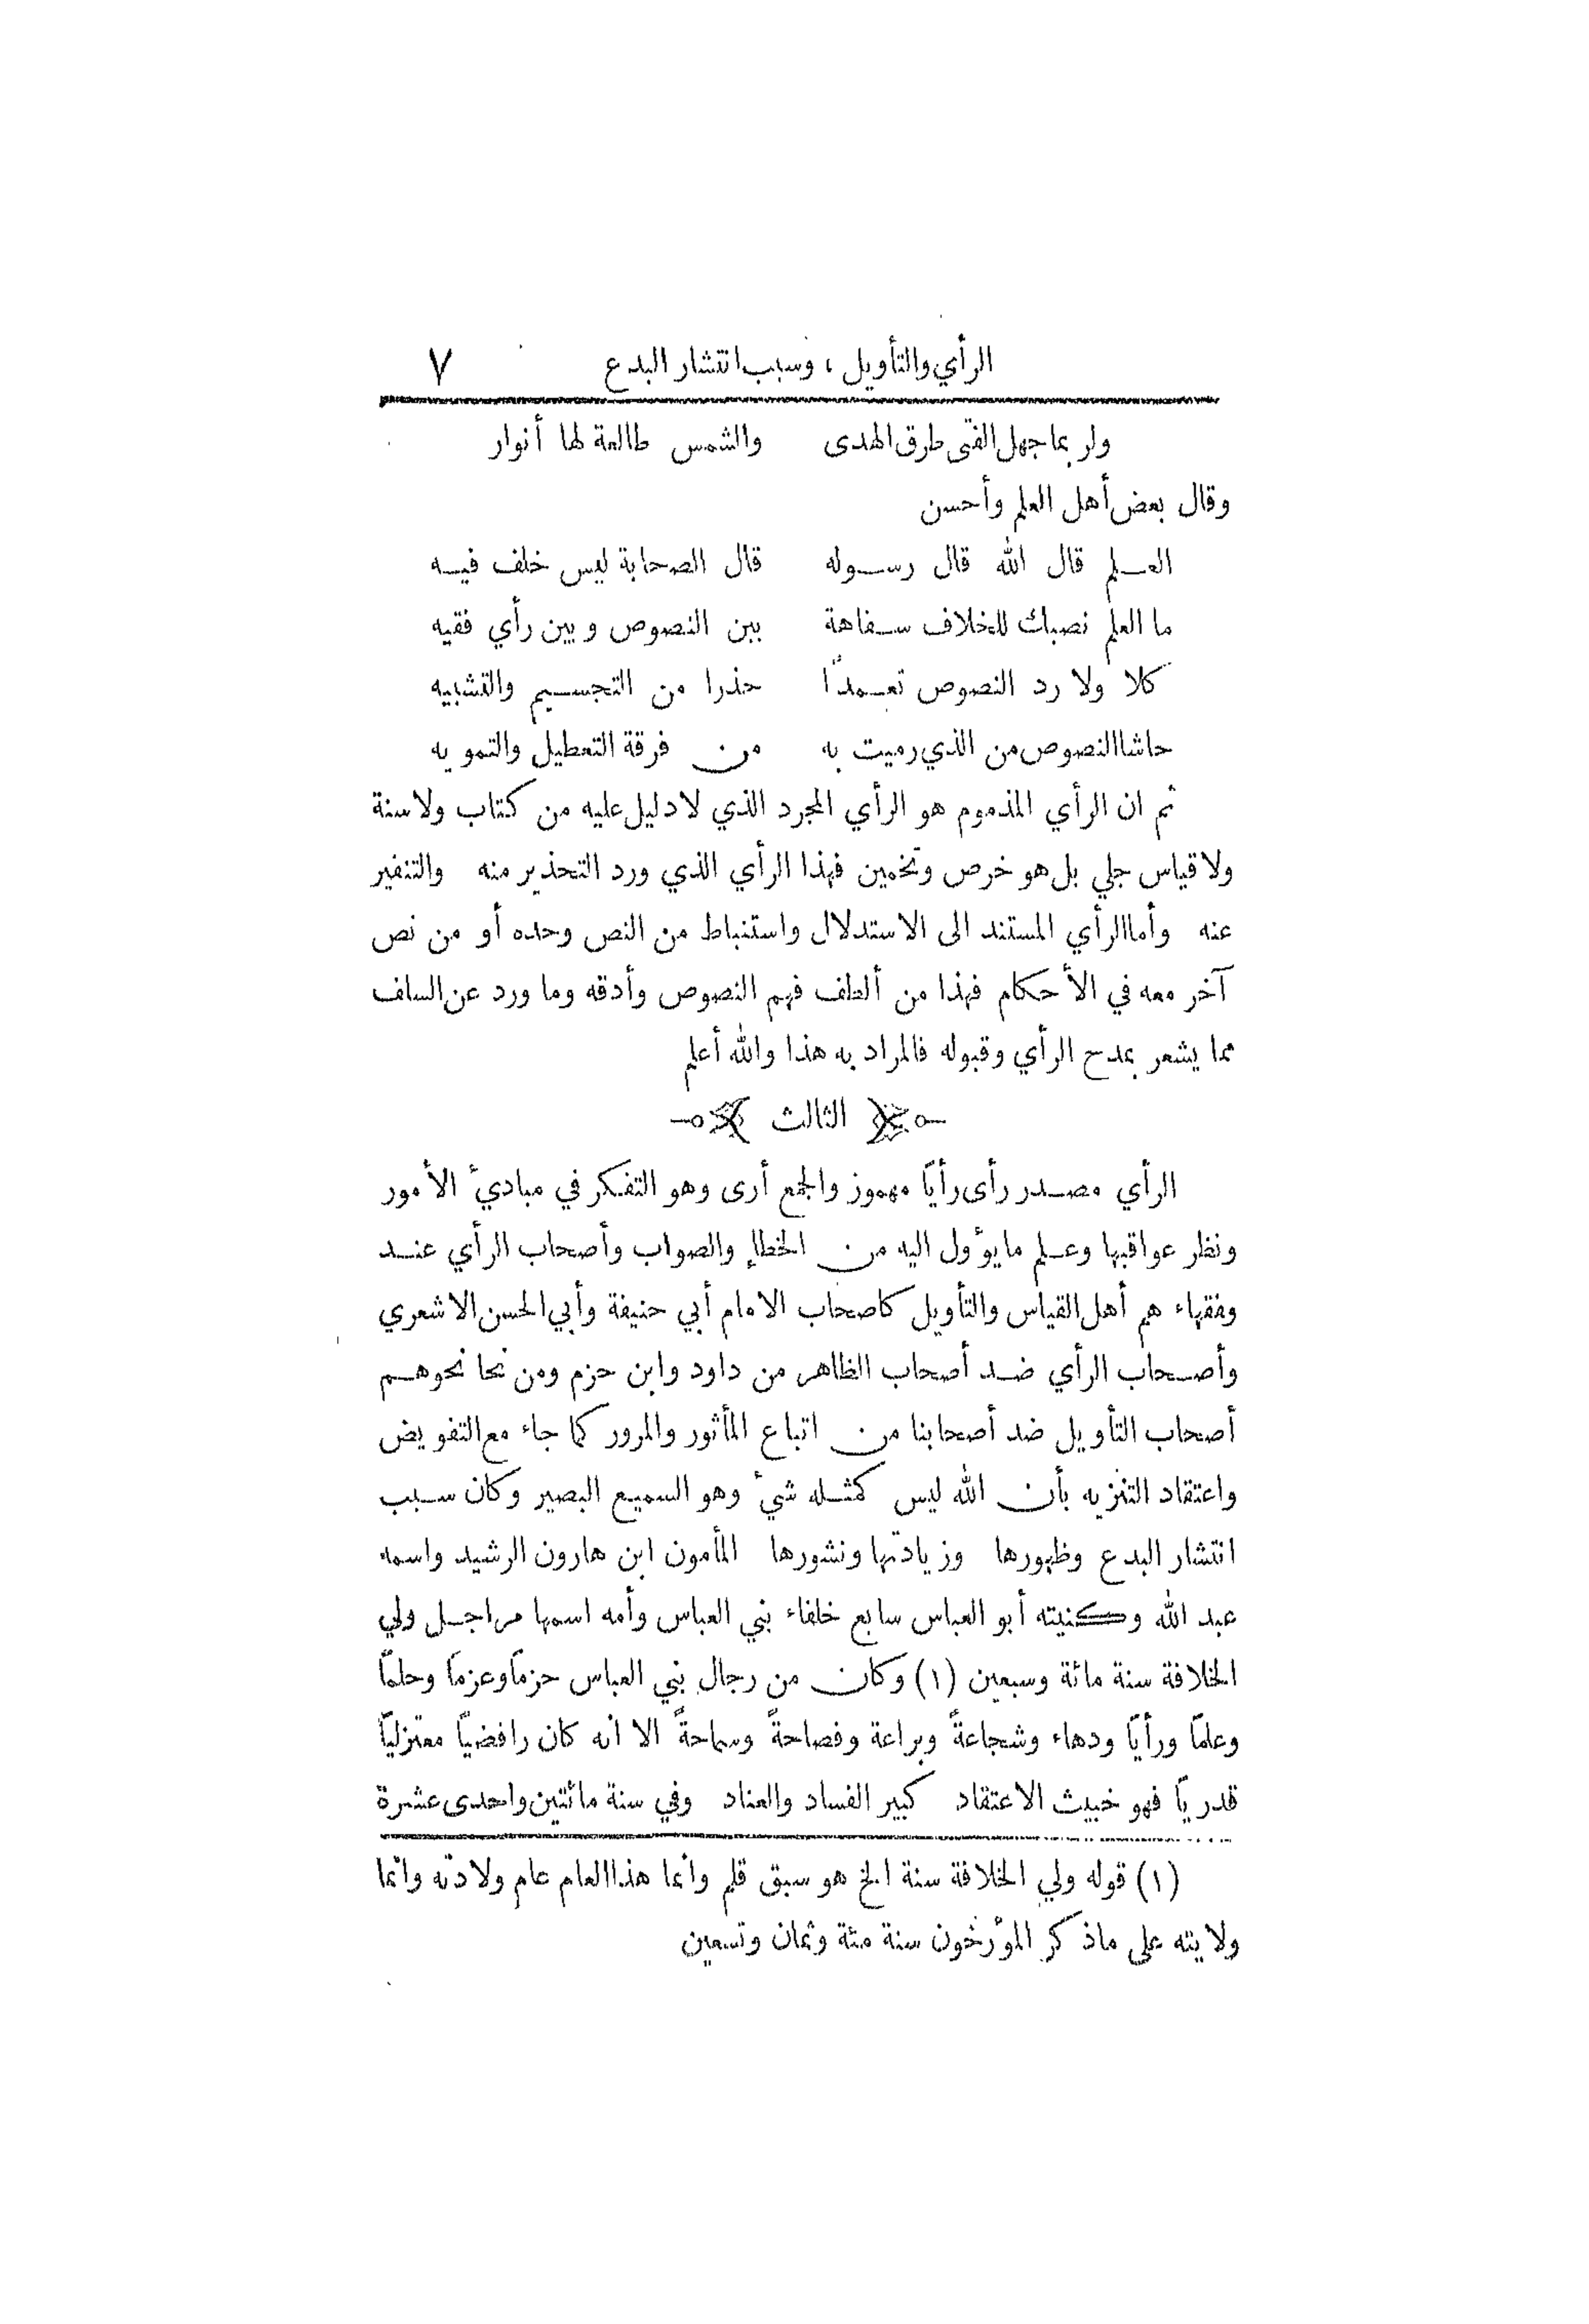 الرأي والتأويل ، وسبب انتشار البدع ٧
ولربما جهل الفتى طرق الهدى والشمس طالعة لها أنوار
وقال بعض أهل العلم وأحسن
العلم قال الله قال رسوله قال الصحابة ليس خلف فيه
ما العلم نصبك للخلاف سفاهة بين النصوص وبين رأي فقيه
كلا ولا رد النصوص تعمدًا حذرا من التجسيم والتشبيه
حاشا النصوص من الذي رميت به من فرقة التعطيل والتمويه
ثم ان الرأي المذموم هو الرأي المجرد الذي لا دليل عليه من كتاب ولا سنة
ولا قياس جلي بل هو خرص وتخمين فهذا الرأي الذي ورد التحذير منه والتنفير
عنه وأما الرأي المستند الى الاستدلال واستنباط من النص وحده أو من نص
آخر معه في الأحكام فهذا من ألطف فهم النصوص وأدقه وما ورد عن السلف
مما يشعر بمدح الرأي وقبوله فالمراد به هذا والله أعلم
الثالث
الرأي مصدر رأى رأيًا مهموز والجمع أرى وهو التفكر في مباديء الأمور
ونظر عواقبها وعلم ما يؤول اليه من الخطإ والصواب وأصحاب الرأي عند
وفقهاء هم أهل القياس والتأويل كاصحاب الامام أبي حنيفة وأبي الحسن الاشعري
وأصحاب الرأي ضد أصحاب الظاهر من داود وابن حزم ومن نحا نحوهم
أصحاب التأويل ضد أصحابنا من اتباع المأثور والمرور كما جاء مع التفويض
واعتقاد التنزيه بأن الله ليس كمثله شيء وهو السميع البصير وكان سبب
انتشار البدع وظهورها وزيادتها ونشورها المأمون ابن هارون الرشيد واسمه
عبد الله وكنيته أبو العباس سابع خلفاء بني العباس وأمه اسمها مراجل ولي
الخلافة سنة مائة وسبعين (١) وكان من رجال بني العباس حزمًا وعزمًا وحلمًا
وعلمًا ورأيًا ودهاء وشجاعةً وبراعة وفصاحةً وسماحةً الا انه كان رافضيًا معتزليًا
قدريًا فهو خبيث الاعتقاد كبير الفساد والعناد وفي سنة مائتين واحدى عشرة
(١) قوله ولي الخلافة سنة الخ هو سبق قلم وانما هذا العام عام ولادته وانما
ولايته على ما ذكر المؤرخون سنة مئة وثمان وتسعين